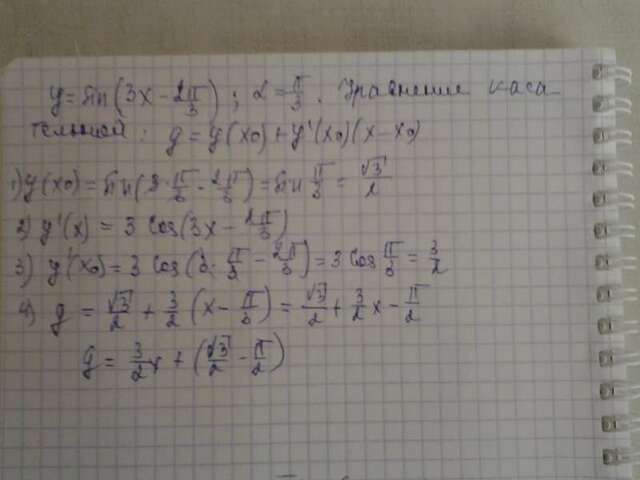 y = sin(3x - 2π/3); α = π/3. Уравнение каса
тельной: y = y(x₀) + y'(x₀)(x - x₀)
1) y(x₀) = sin(3·π/3 - 2π/3) = sin π/3 = √3/2
2) y'(x) = 3 cos(3x - 2π/3)
3) y'(x₀) = 3 cos(3·π/3 - 2π/3) = 3 cos π/3 = 3/2
4) y = √3/2 + 3/2 (x - π/3) = √3/2 + 3/2 x - π/2
y = 3/2 x + (√3/2 - π/2)